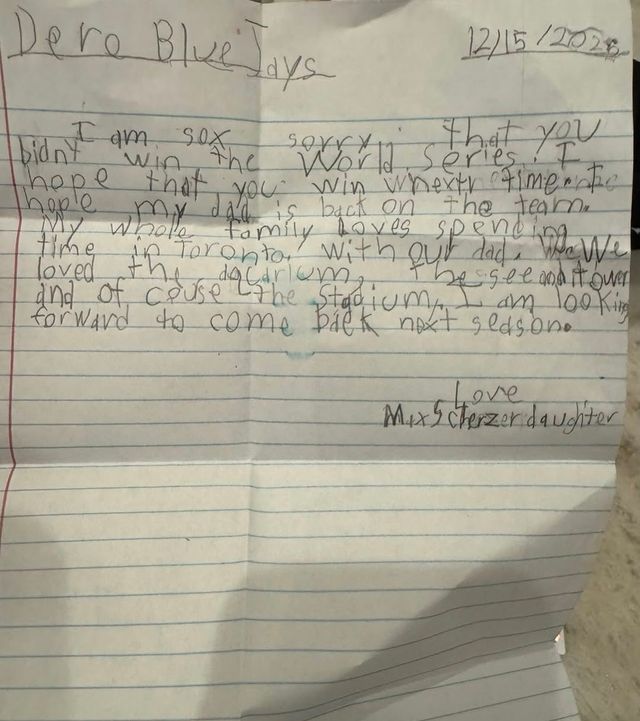 Dero Blue Jays
12/15/2025
I am sox sorry that you
bidnt win the World series. I
hope that you win wnextr time. I
hope my dad is back on the team.
My whole family loves spending
time in Toronto. with our dad. We We
loved the aqcarium, the seeandit ower
and of couse the Stadium. I am looking
forward to come back next season.
Love
Max Scherzer daughter